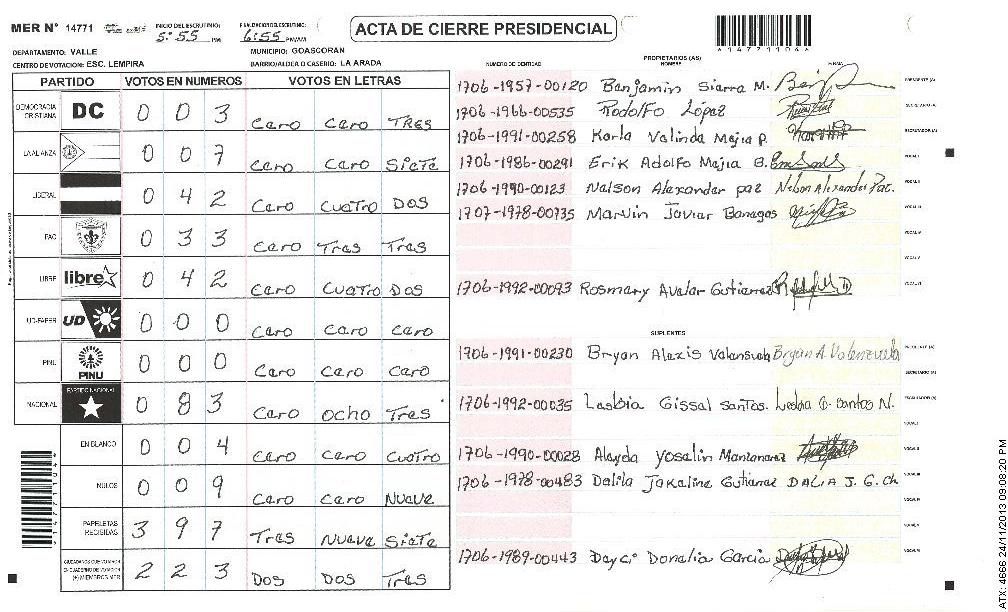 MER N° 14771 INICIO DEL ESCRUTINIO: 5:55 PM FINALIZACION ESCRUTINIO: 6:55 PM/AM ACTA DE CIERRE PRESIDENCIAL
*14771104*
DEPARTAMENTO: VALLE MUNICIPIO: GOASCORAN
CENTRO DE VOTACION: ESC. LEMPIRA BARRIO/ALDEA O CASERIO: LA ARADA
PARTIDO VOTOS EN NUMEROS VOTOS EN LETRAS
DEMOCRACIA CRISTIANA DC 0 0 3 Cero Cero Tres
LA ALIANZA 0 0 7 Cero Cero Siete
LIBERAL 0 4 2 Cero Cuatro Dos
PAC 0 3 3 Cero Tres Tres
LIBRE libre 0 4 2 Cero Cuatro Dos
UD-FAPER UD 0 0 0 Cero Cero Cero
PINU PINU 0 0 0 Cero Cero Cero
NACIONAL PARTIDO NACIONAL 0 8 3 Cero Ocho Tres
EN BLANCO 0 0 4 Cero Cero Cuatro
NULOS 0 0 9 Cero Cero Nueve
PAPELETAS RECIBIDAS 3 9 7 Tres Nueve Siete
CIUDADANOS QUE VOTARON EN CUADERNO DE VOTACION (+) MIEMBROS MER 2 2 3 Dos Dos Tres
PROPIETARIOS (AS)
NUMERO DE IDENTIDAD NOMBRE FIRMA
1706-1957-00120 Benjamin Sierra M. PRESIDENTE (A)
1706-1966-00535 Rodolfo López SECRETARIO (A)
1706-1991-00258 Karla Valinda Mejia P. ESCRUTADOR (A)
1706-1986-00291 Erik Adolfo Mejia B. VOCAL I
1706-1990-00123 Nelson Alexander paz Nelson Alexander Paz. VOCAL II
1707-1978-00735 Marvin Javier Banegas VOCAL III
VOCAL IV
VOCAL V
1706-1992-00093 Rosmary Avelar Gutierrez VOCAL VI
SUPLENTES
1706-1991-00230 Bryan Alexis Valensuela Bryan A. Valenzuela PRESIDENTE (A)
SECRETARIO (A)
1706-1992-00035 Lesbia Gissel santos. Lesbia G. Santos N. ESCRUTADOR (A)
VOCAL I
1706-1990-00028 Aleyda Yoselin Manzanarez VOCAL II
1706-1978-00483 Dalila Jakeline Gutierrez DALIA J. G. Ch VOCAL III
VOCAL IV
VOCAL V
1706-1989-00443 Deyci Donelia Garcia VOCAL VI
ATX: 4666 24/11/2013 09:08:20 PM